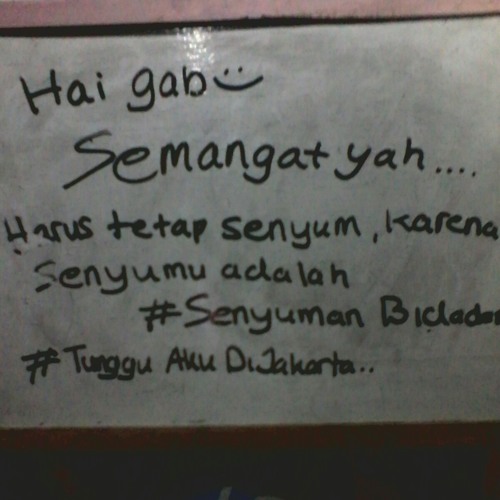 Hai gab
Semangat yah....
Harus tetap senyum, karena
Senyumu adalah
#Senyuman
#Tunggu Aku DiJakarta..